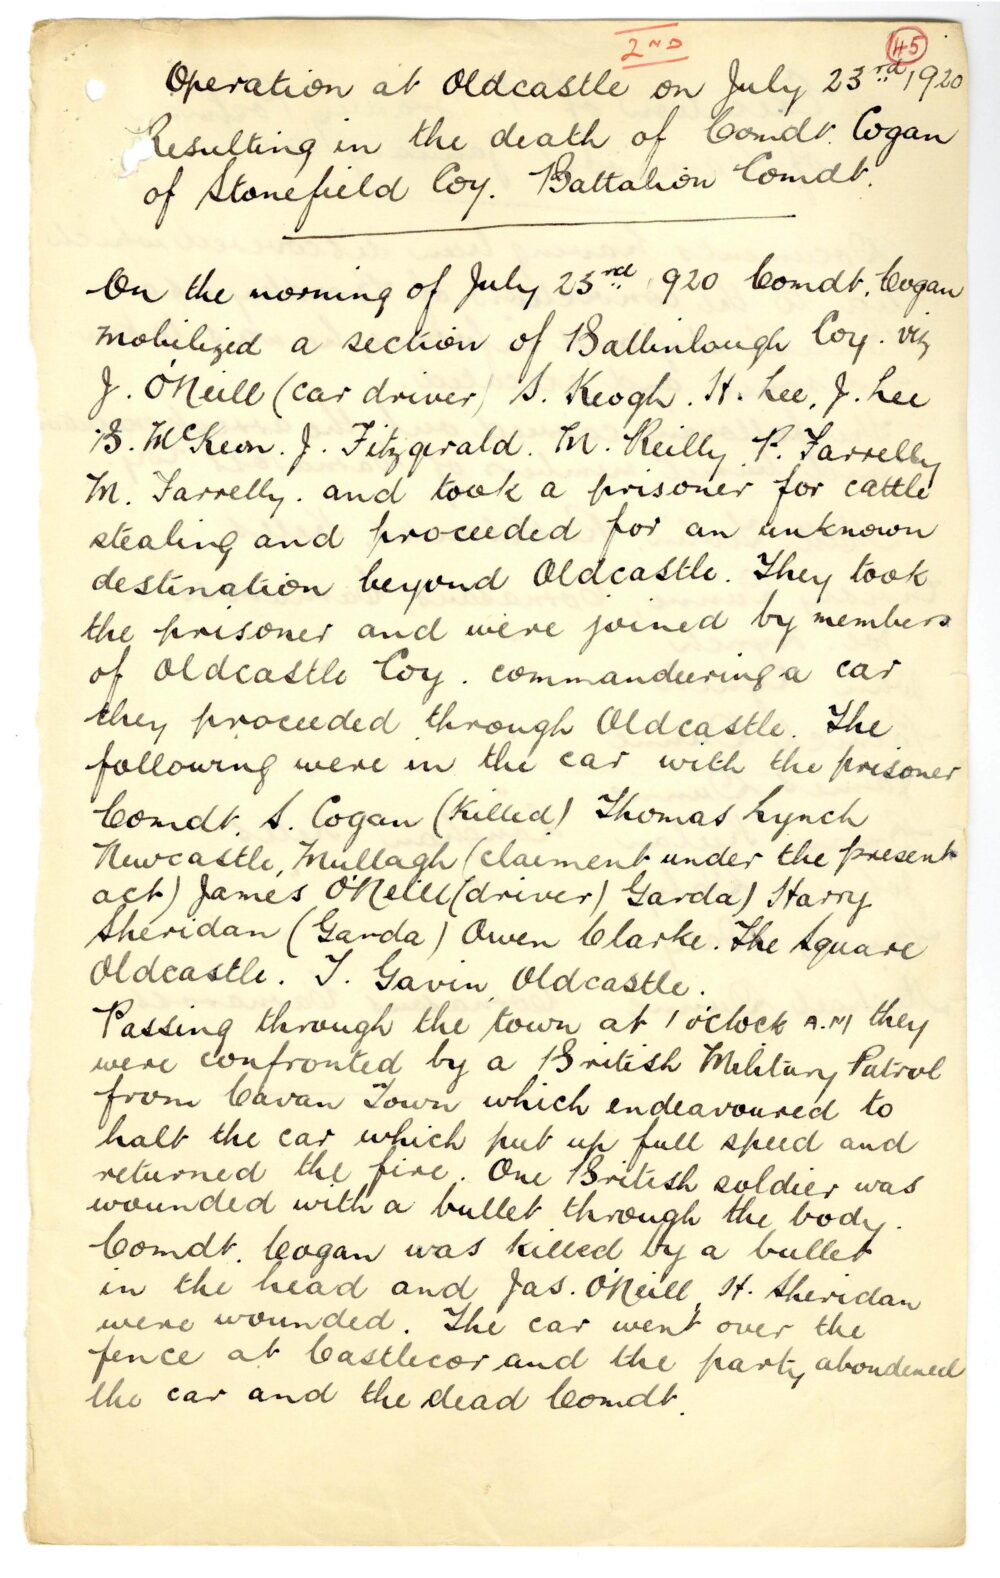 2ND
45
Operation at Oldcastle on July 23rd 1920
Resulting in the death of Comdt. Cogan
of Stonefield Coy. Battalion Comdt.
On the morning of July 23rd 1920 Comdt. Cogan
mobilized a section of Ballinlough Coy. viz
J. O'Neill (car driver) S. Keogh. H. Lee, J. Lee
B. McKeon. J. Fitzgerald. M. Reilly P. Farrelly
M. Farrelly. and took a prisoner for cattle
stealing and proceeded for an unknown
destination beyond Oldcastle. They took
the prisoner and were joined by members
of Oldcastle Coy. commandeering a car
they proceeded through Oldcastle. The
following were in the car with the prisoner
Comdt. S. Cogan (killed) Thomas Lynch
Newcastle, Mullagh (claiment under the present
act) James O'Neill (driver) Garda) Harry
Sheridan (Garda) Owen Clarke. The Square
Oldcastle. T. Gavin, Oldcastle.
Passing through the town at 1 o'clock A.M they
were confronted by a British Military Patrol
from Cavan Town which endeavoured to
halt the car which put up full speed and
returned the fire. One British soldier was
wounded with a bullet through the body.
Comdt. Cogan was killed by a bullet
in the head and Jas. O'Neill, H. Sheridan
were wounded. The car went over the
fence at Castlecor and the party abondened
the car and the dead Comdt.